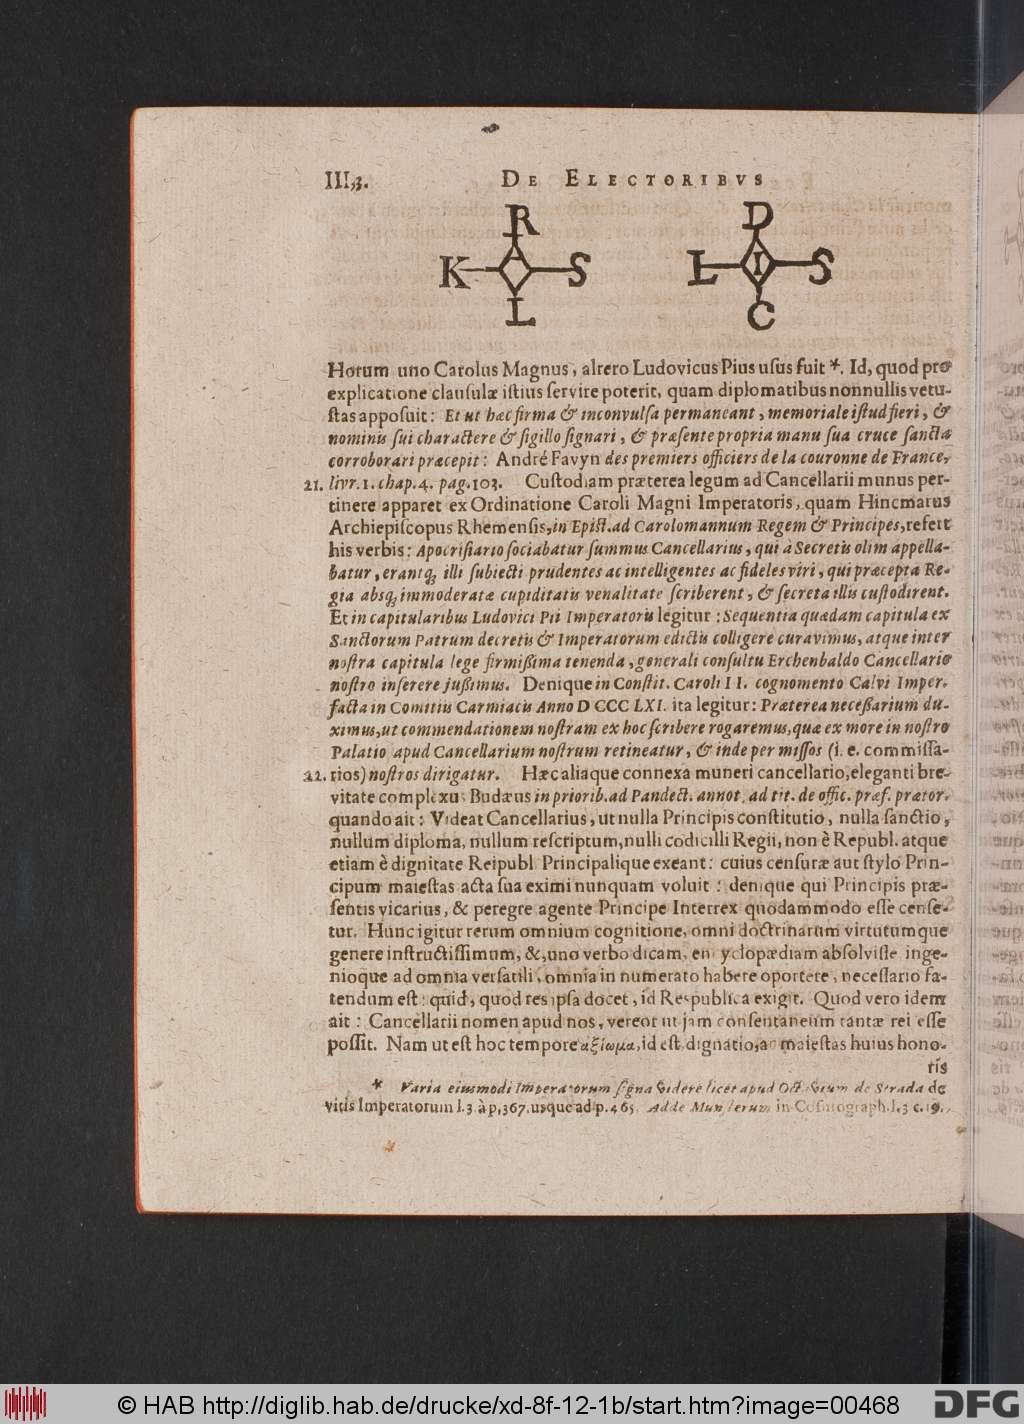 III,3. DE ELECTORIBVS
R D
K A S L I S
L C
Horum uno Carolus Magnus, altero Ludovicus Pius usus fuit *. Id, quod pro
explicatione clausulæ istius servire poterit, quam diplomatibus nonnullis vetu-
stas apposuit: Et ut hæc firma & inconvulsa permaneant, memoriale istud fieri, &
nominis sui charactere & sigillo signari, & præsente propria manu sua cruce sancta
corroborari præcepit: André Favyn des premiers officiers de la couronne de France,
21. livr. 1. chap. 4. pag. 103. Custodiam præterea legum ad Cancellarii munus per-
tinere apparet ex Ordinatione Caroli Magni Imperatoris, quam Hincmarus
Archiepiscopus Rhemensis, in Epist. ad Carolomannum Regem & Principes, refert
his verbis: Apocrisiario sociabatur summus Cancellarius, qui à Secretis olim appella-
batur, erantq; illi subiecti prudentes ac intelligentes ac fideles viri, qui præcepta Re-
gia absq; immoderatæ cupiditatis venalitate scriberent, & secreta illis custodirent.
Et in capitularibus Ludovici Pii Imperatoris legitur: Sequentia quædam capitula ex
Sanctorum Patrum decretis & Imperatorum edictis colligere curavimus, atque inter
nostra capitula lege firmißima tenenda, generali consultu Erchenbaldo Cancellario
nostro inserere jußimus. Denique in Constit. Caroli II. cognomento Calvi Imper.
facta in Comitiis Carmiacis Anno D CCC LXI. ita legitur: Præterea neceßarium du-
ximus, ut commendationem nostram ex hoc scribere rogaremus, quæ ex more in nostro
Palatio apud Cancellarium nostrum retineatur, & inde per missos (i. e. commissa-
22. rios) nostros dirigatur. Hæc aliaque connexa muneri cancellario, eleganti bre-
vitate complexu: Budæus in priorib. ad Pandect. annot. ad tit. de offic. præf. prætor.
quando ait: Videat Cancellarius, ut nulla Principis constitutio, nulla sanctio,
nullum diploma, nullum rescriptum, nulli codicilli Regii, non è Republ. atque
etiam è dignitate Reipubl. Principalique exeant: cuius censuræ aut stylo Prin-
cipum maiestas acta sua eximi nunquam voluit: denique qui Principis præ-
sentis vicarius, & peregre agente Principe Interrex quodammodo esse cense-
tur. Hunc igitur rerum omnium cognitione, omni doctrinarum virtutumque
genere instructissimum, &, uno verbo dicam, en yclopædiam absolvisse inge-
nioque ad omnia versatili, omnia in numerato habere oportere, necessario fa-
tendum est: quid, quod res ipsa docet, id Respublica exigit. Quod vero idem
ait: Cancellarii nomen apud nos, vereor ut jam consentaneum tantæ rei esse
possit. Nam ut est hoc tempore αξίωμα, id est, dignatio, ac maiestas huius hono-
ris
* Varia eiusmodi Imperatorum signa videre licet apud Octavium de Strada de
vitis Imperatorum l. 3. à p. 367. usque ad p. 465. Adde Munsterum in Cosmograph. l. 3 c. 19.
© HAB http://diglib.hab.de/drucke/xd-8f-12-1b/start.htm?image=00468
DFG